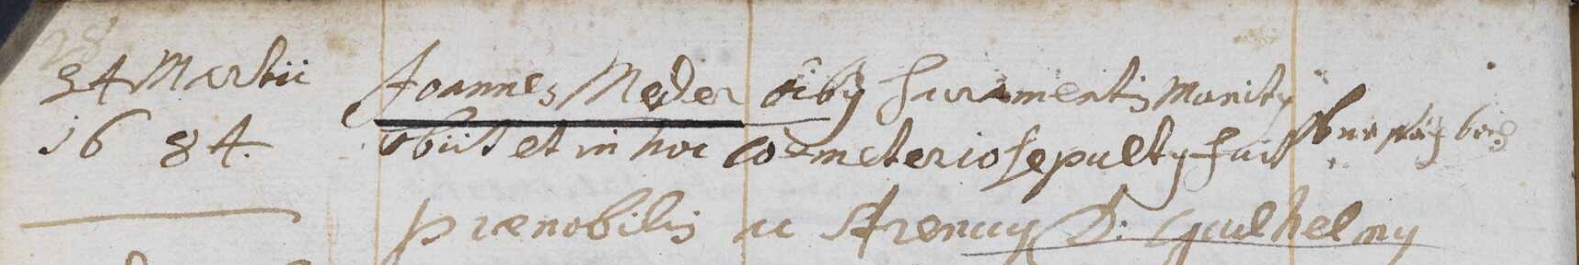 24 Martii Joannes Meder oibus sacramentis munitus
1684. obiit et in hoc coemeterio sepultus fuit
praenobilis ac strenuus D: Guilhelmus